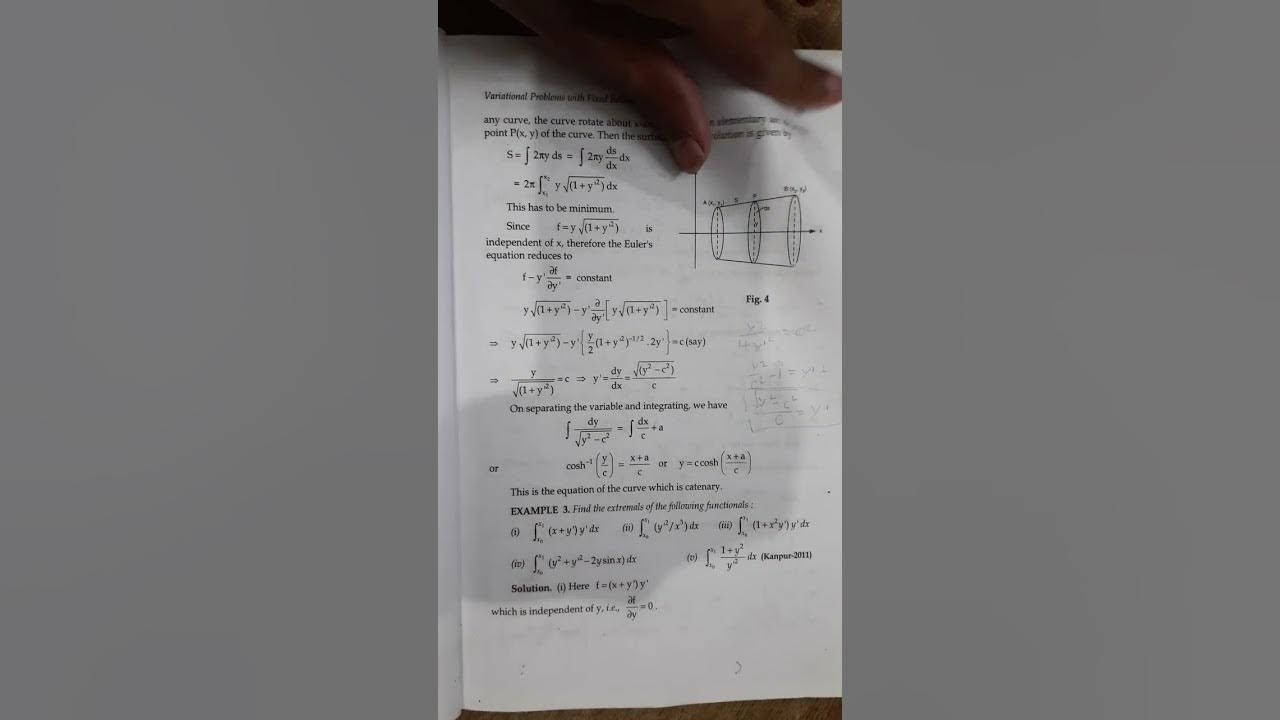 Variational Problems with Fixed
any curve, the curve rotate about elementary
point P(x, y) of the curve. Then the is given by
S = ∫ 2πy ds = ∫ 2πy ds/dx dx
= 2π ∫_{x₁}^{x₂} y √(1 + y'²) dx
This has to be minimum.
Since f = y √(1 + y'²) is
independent of x, therefore the Euler's
equation reduces to
f – y' ∂f/∂y' = constant
A (x₁, y₁) S P B (x₂, y₂)
x
Fig. 4
y√(1 + y'²) – y' ∂/∂y' [y√(1 + y'²)] = constant
⇒ y√(1 + y'²) – y' {y/2 (1 + y'²)^{-1/2} . 2y'} = c (say)
⇒ y/√(1 + y'²) = c ⇒ y' = dy/dx = √(y² – c²)/c
y²/1+y'² = c²
y²/c² – 1 = y'²
√y² – c²/c = y'
On separating the variable and integrating, we have
∫ dy/√y² – c² = ∫ dx/c + a
or cosh⁻¹ (y/c) = x + a/c or y = c cosh (x + a/c)
This is the equation of the curve which is catenary.
EXAMPLE 3. Find the extremals of the following functionals :
(i) ∫_{x₀}^{x₁} (x + y') y' dx (ii) ∫_{x₀}^{x₁} (y'²/x³) dx (iii) ∫_{x₀}^{x₁} (1 + x²y') y' dx
(iv) ∫_{x₀}^{x₁} (y² + y'² – 2y sin x) dx (v) ∫_{x₀}^{x₁} 1 + y²/y'² dx (Kanpur-2011)
Solution. (i) Here f = (x + y') y'
which is independent of y, i.e., ∂f/∂y = 0 .